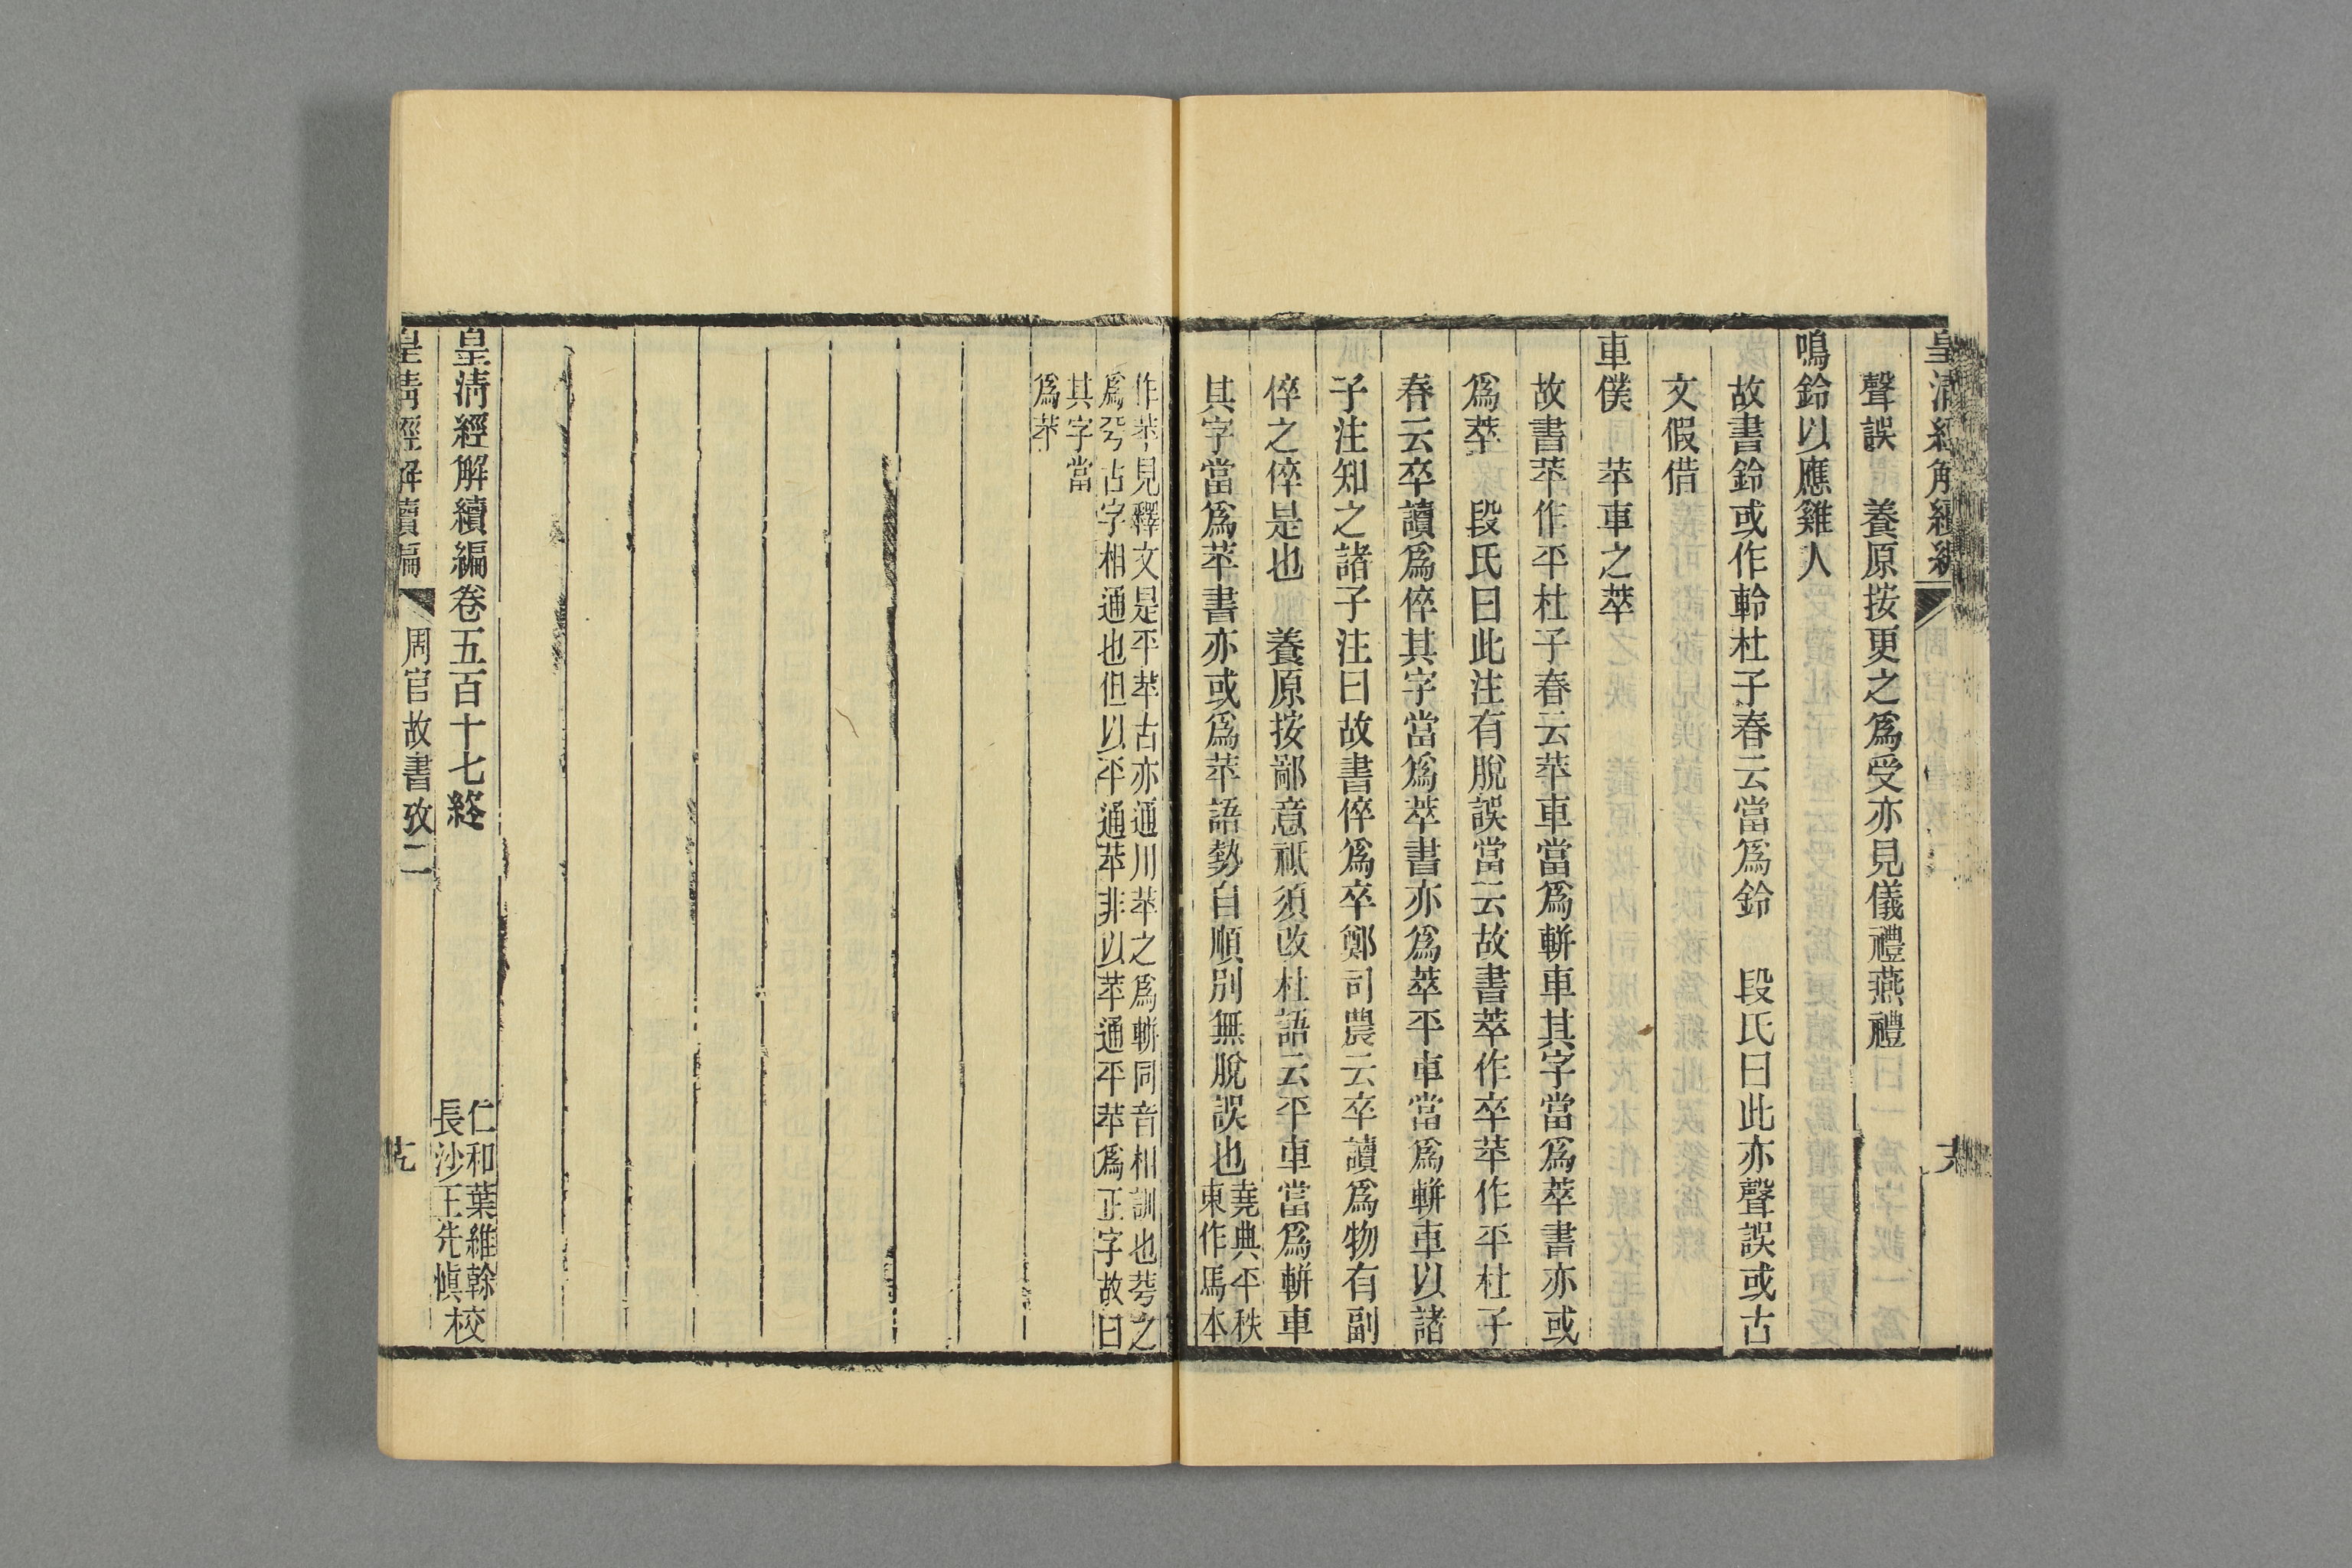 皇清經解續編
聲誤　養原按更之爲受亦見儀禮燕禮
鳴鈴以應雞人
故書鈴或作軨杜子春云當爲鈴　段氏曰此亦聲誤或古
文假借
車僕　苹車之萃
故書苹作平杜子春云苹車當爲軿車其字當爲萃書亦或
爲萃　段氏曰此注有脫誤當云故書萃作卒苹作平杜子
春云卒讀爲倅其字當爲萃書亦爲萃平車當爲軿車以諸
子注知之諸子注曰故書倅爲卒鄭司農云卒讀爲物有副
倅之倅是也　養原按鄙意祗須改杜語云平車當爲軿車
其字當爲苹書亦或爲苹語勢自順別無脫誤也
堯典平秩
東作馬本
作苹見釋文是平苹古亦通川苹之爲軿同音相訓也蕚之
爲咢古字相通也但以平通苹非以萃通平苹爲正字故曰
其字當
爲苹
皇清經解續編卷五百十七終
仁和葉維幹
長沙王先慎
校
皇清經解續編
周官故書攷二